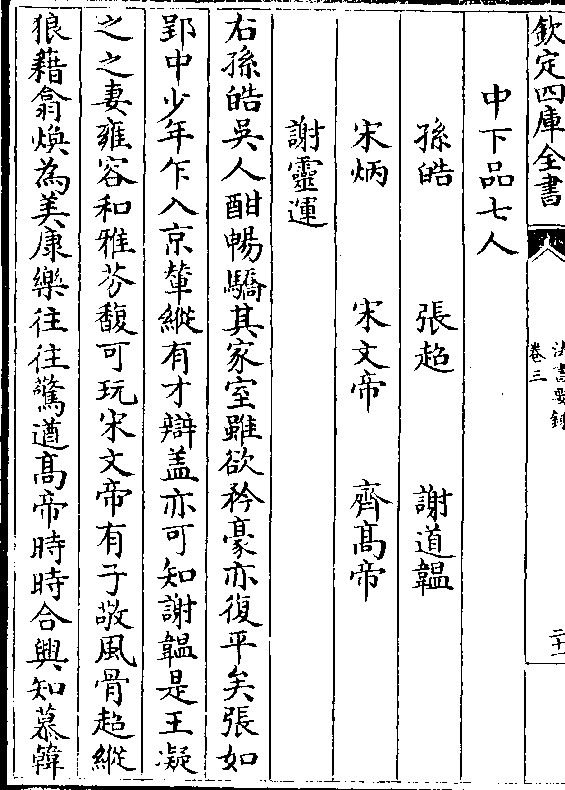 欽定四庫全書
法書要錄
卷三
二十一
中下品七人
孫皓 張超 謝道韞
宋炳 宋文帝 齊髙帝
謝靈運
右孫皓吳人酣暢驕其家室雖欲矜豪亦復平矣張如
郢中少年乍入京輦縱有才辯盖亦可知謝韞是王凝
之之妻雍容和雅芬馥可玩宋文帝有子敬風骨超縱
狼藉翕煥為美康樂往往驚遒髙帝時時合興知慕韓